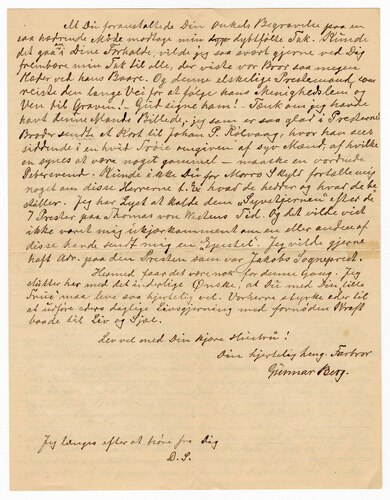 At Du foranstaltede Din Onkels Begravelse paa en
saa hædrende Maade modtage min dybtfølte Tak. Kunde
det gaa an i Dine Forholde, vilde jeg saa svært gjerne ved Dig
frembære min Tak til alle, der viste vor Bror saa megen
Heder ved hans Baare. Og denne elskelige Prestemand, som
reiste den lange Vei for at følge hans Menighedslem og
Ven til Graven! Gud signe ham! Tænk om jeg havde
havt denne Mands Billede, jeg som er saa glad i Presterne
Broder sendte et Kort til Johan P. Kilvang, hvor han sees
siddende i en hvid Trøie omgiven af syv Mænd, af hvilke
en synes at være noget gammel – maaske en vordende
Petersvend. Kunde ikke Du for Morro Skyld fortælle mig
noget om disse Herrerne t. Ex hvad de hedder og hvad de be-
stiller. Jeg har Lyst at kalde dem "Syvstjernen" efter de
7 Prester paa Thomas von Westens Tid. Og det vilde vist
ikke været mig uvelkomment om en eller anden af
disse havde sendt mig en "Epistel". Jeg vilde gjerne
havt Adr. paa den Presten som var Jakobs Sogneprest.
Hermed faar det være nok for denne Gang. Jeg
slutter her med det inderlige Ønske, at Du med Din lille
Frue maa leve saa hjertelig vel. Vorherre styrke eder til
at udføre eders daglige Livsgjerning med fornøden Kraft
baade til Liv og Sjæl.
Lev vel med Din kjære Hustru!
Din hjertelig heng. Farbror
Gunnar Berg.
Jeg længes efter at høre fra Dig
D. S.